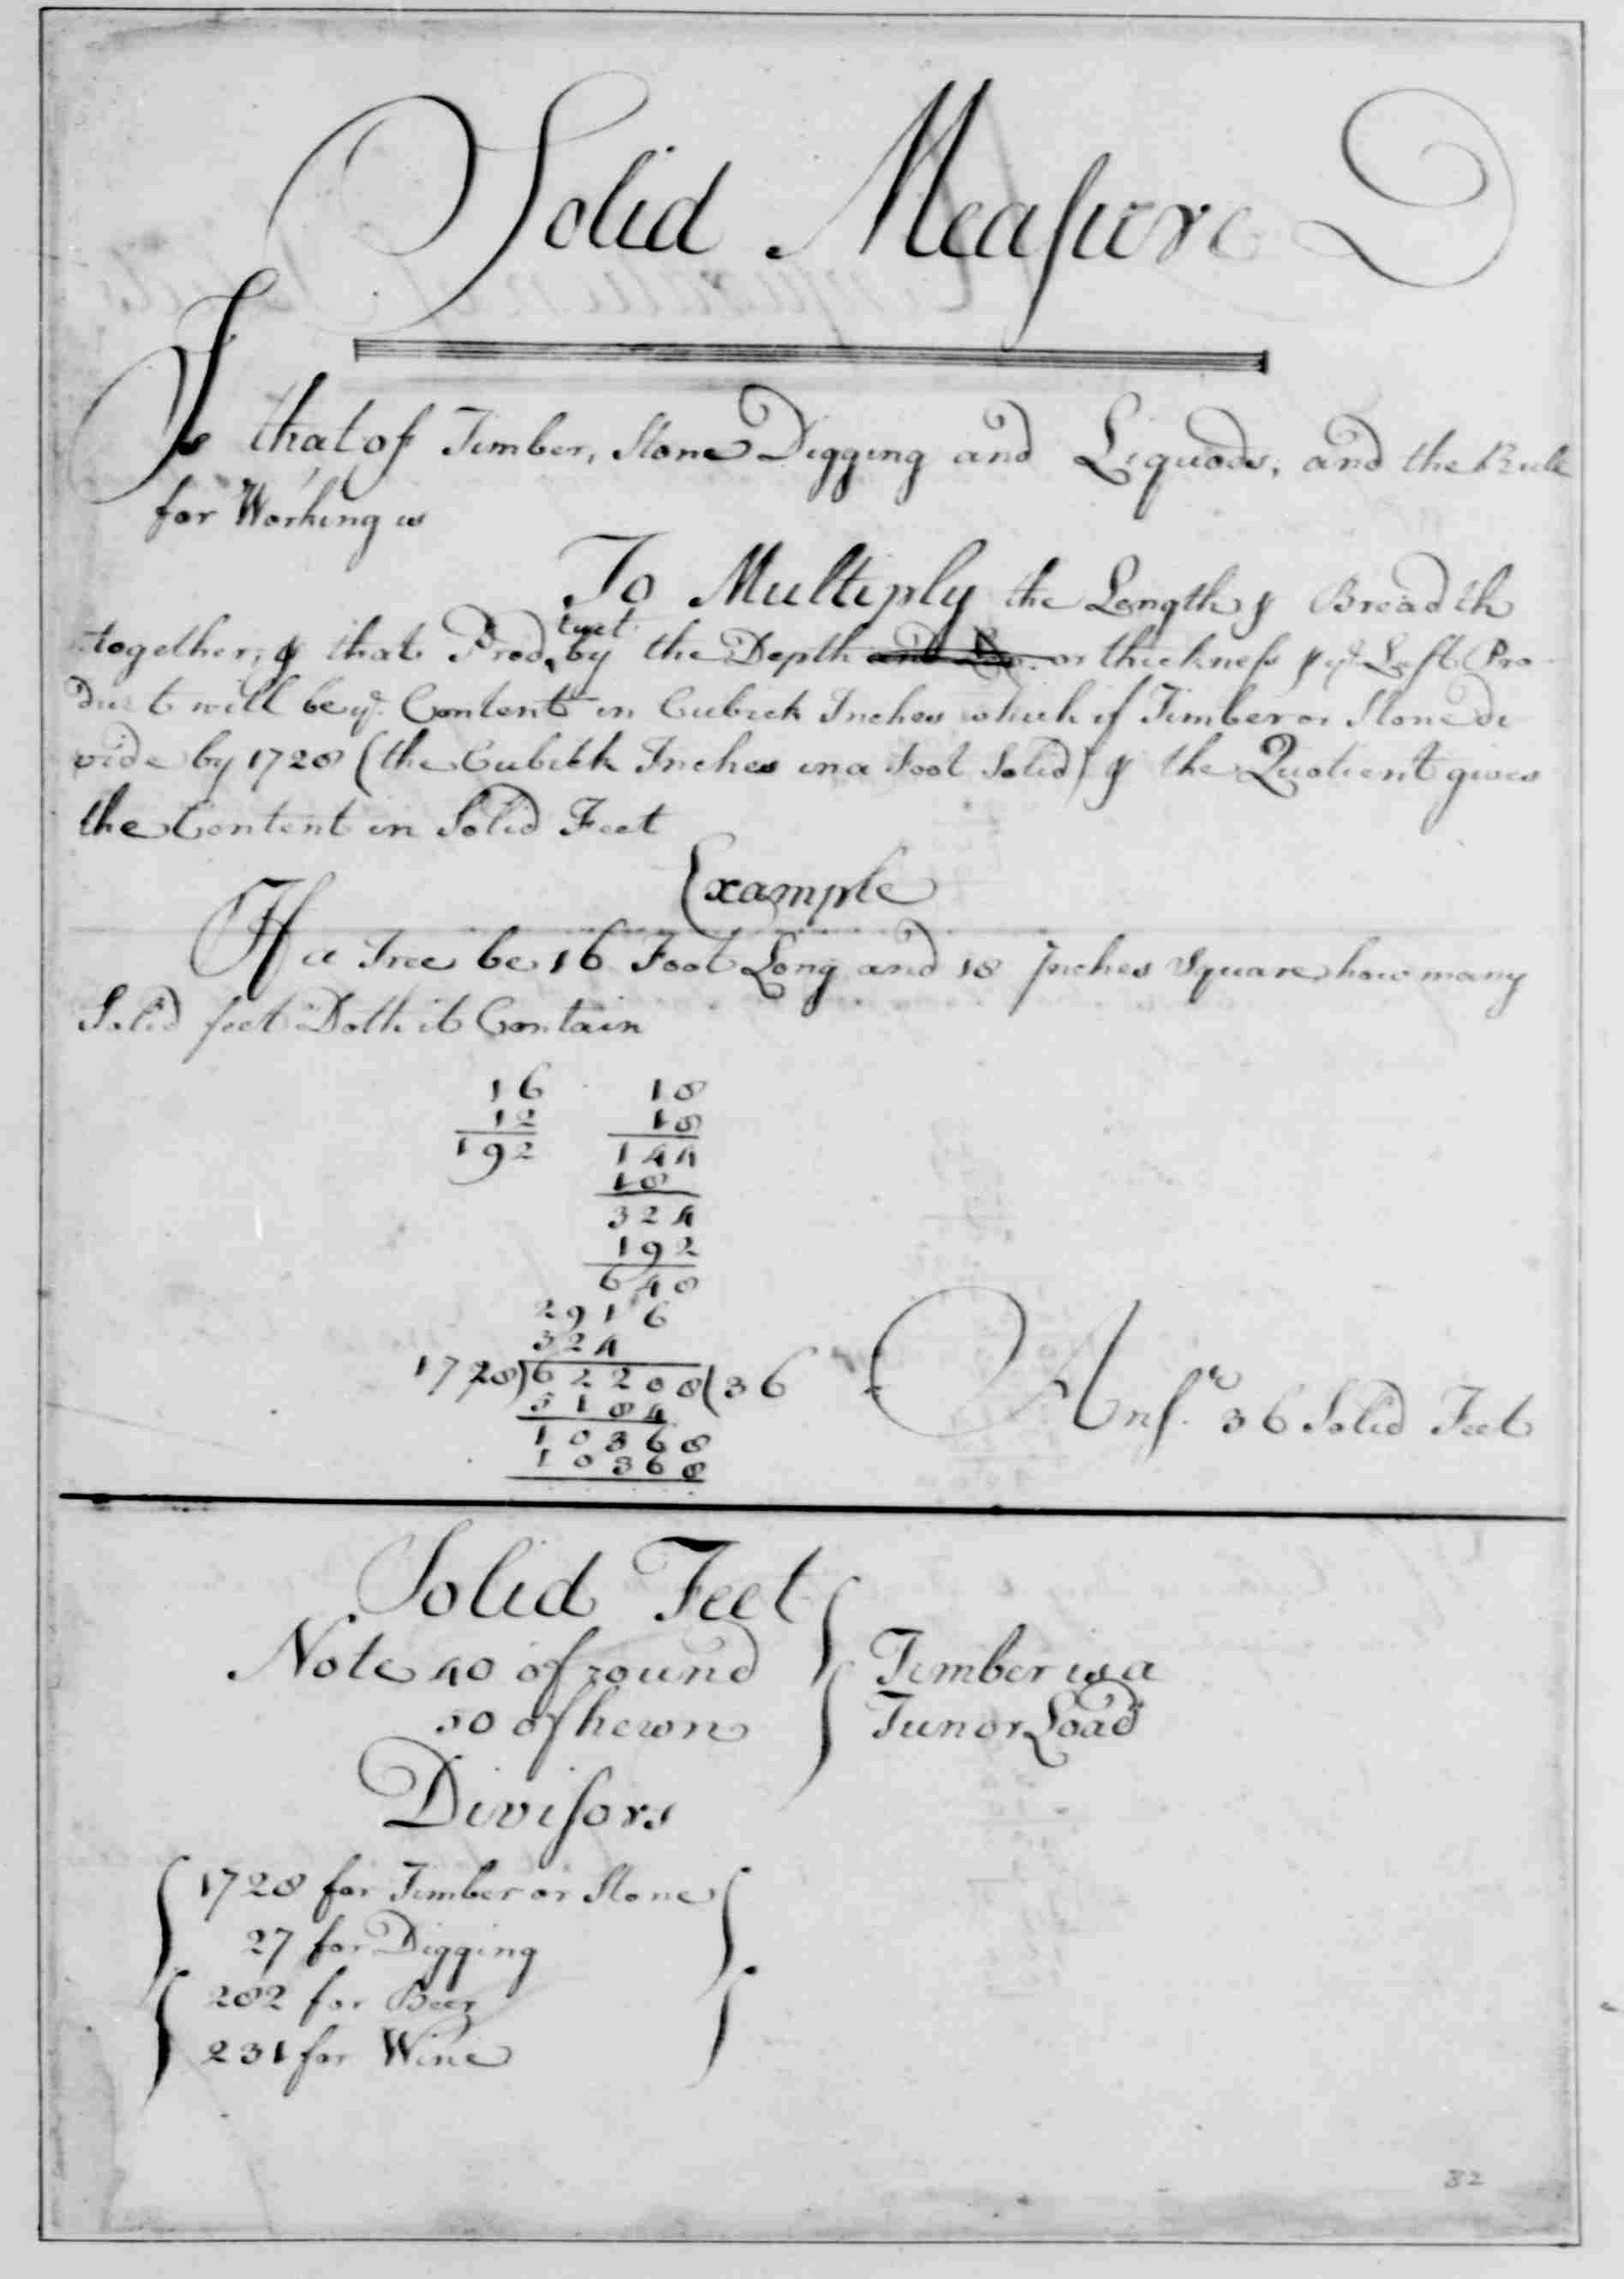 Solid Meaſure
Is that of Timber, Stone Digging and Liquods, and the Rule
for Working is
To Multiply the Length & Breadth
together, & that Prod^uct by the Depth or thickneſs & yᵉ Laſt Pro-
duct will be yᵉ Content in Cubick Inches which if Timber or Stone di
vide by 1728 (the Cubick Inches in a Foot Solid) & the Quotient gives
the Content in Solid Feet
Example
If a Tree be 16 Foot Long and 18 Inches Square how many
Solid feet Doth it Contain
16 18
12 18
192 144
18
324
192
648
2916
324
1728)62208(36
5184
10368
10368
Anſʷ. 36 Solid Feet
Solid Feet
Note 40 of round } Timber is a
50 of hewn } Tun or Load
Diviſors
1728 for Timber or Stone
27 for Digging
282 for Beer
231 for Wine
32